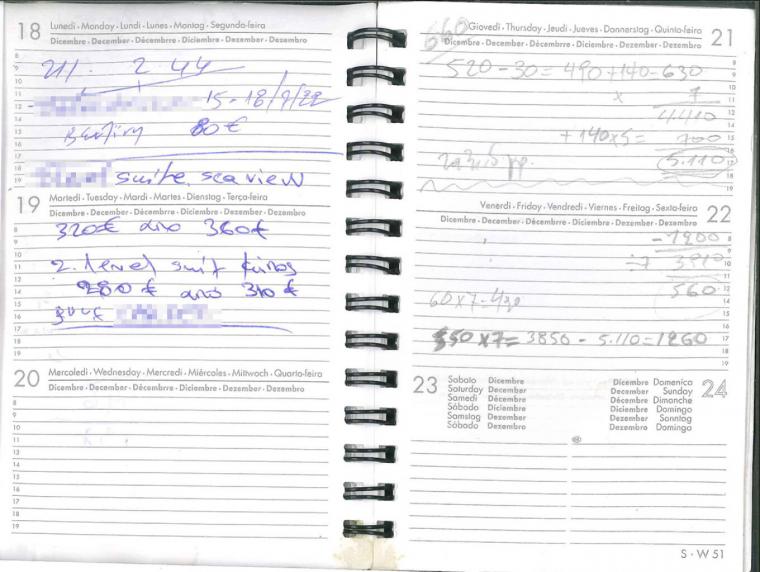 18 Lunedì · Monday · Lundi · Lunes · Montag · Segunda-feira
Dicembre · December · Décembre · Diciembre · Dezember · Dezembro
211. 2.44
15-18/9/22
80€
suite sea view
19 Martedì · Tuesday · Mardi · Martes · Dienstag · Terça-feira
Dicembre · December · Décembre · Diciembre · Dezember · Dezembro
320€ απο 360€
2. level suit
280€ απο 310€
20 Mercoledì · Wednesday · Mercredi · Miércoles · Mittwoch · Quarta-feira
Dicembre · December · Décembre · Diciembre · Dezember · Dezembro
660
Giovedì · Thursday · Jeudi · Jueves · Donnerstag · Quinta-feira 21
Dicembre · December · Décembre · Diciembre · Dezember · Dezembro
520-30=490+140=630
x 7
4.410
+140x5= 700
5.110
Venerdì · Friday · Vendredi · Viernes · Freitag · Sexta-feira 22
Dicembre · December · Décembre · Diciembre · Dezember · Dezembro
-1200
÷7 3910
560
60x7=420
550x7=3850-5.110=1260
23 Sabato Dicembre
Saturday December
Samedi Décembre
Sábado Diciembre
Samstag Dezember
Sábado Dezembro
Dicembre Domenica 24
December Sunday
Décembre Dimanche
Diciembre Domingo
Dezember Sonntag
Dezembro Domingo
S · W 51